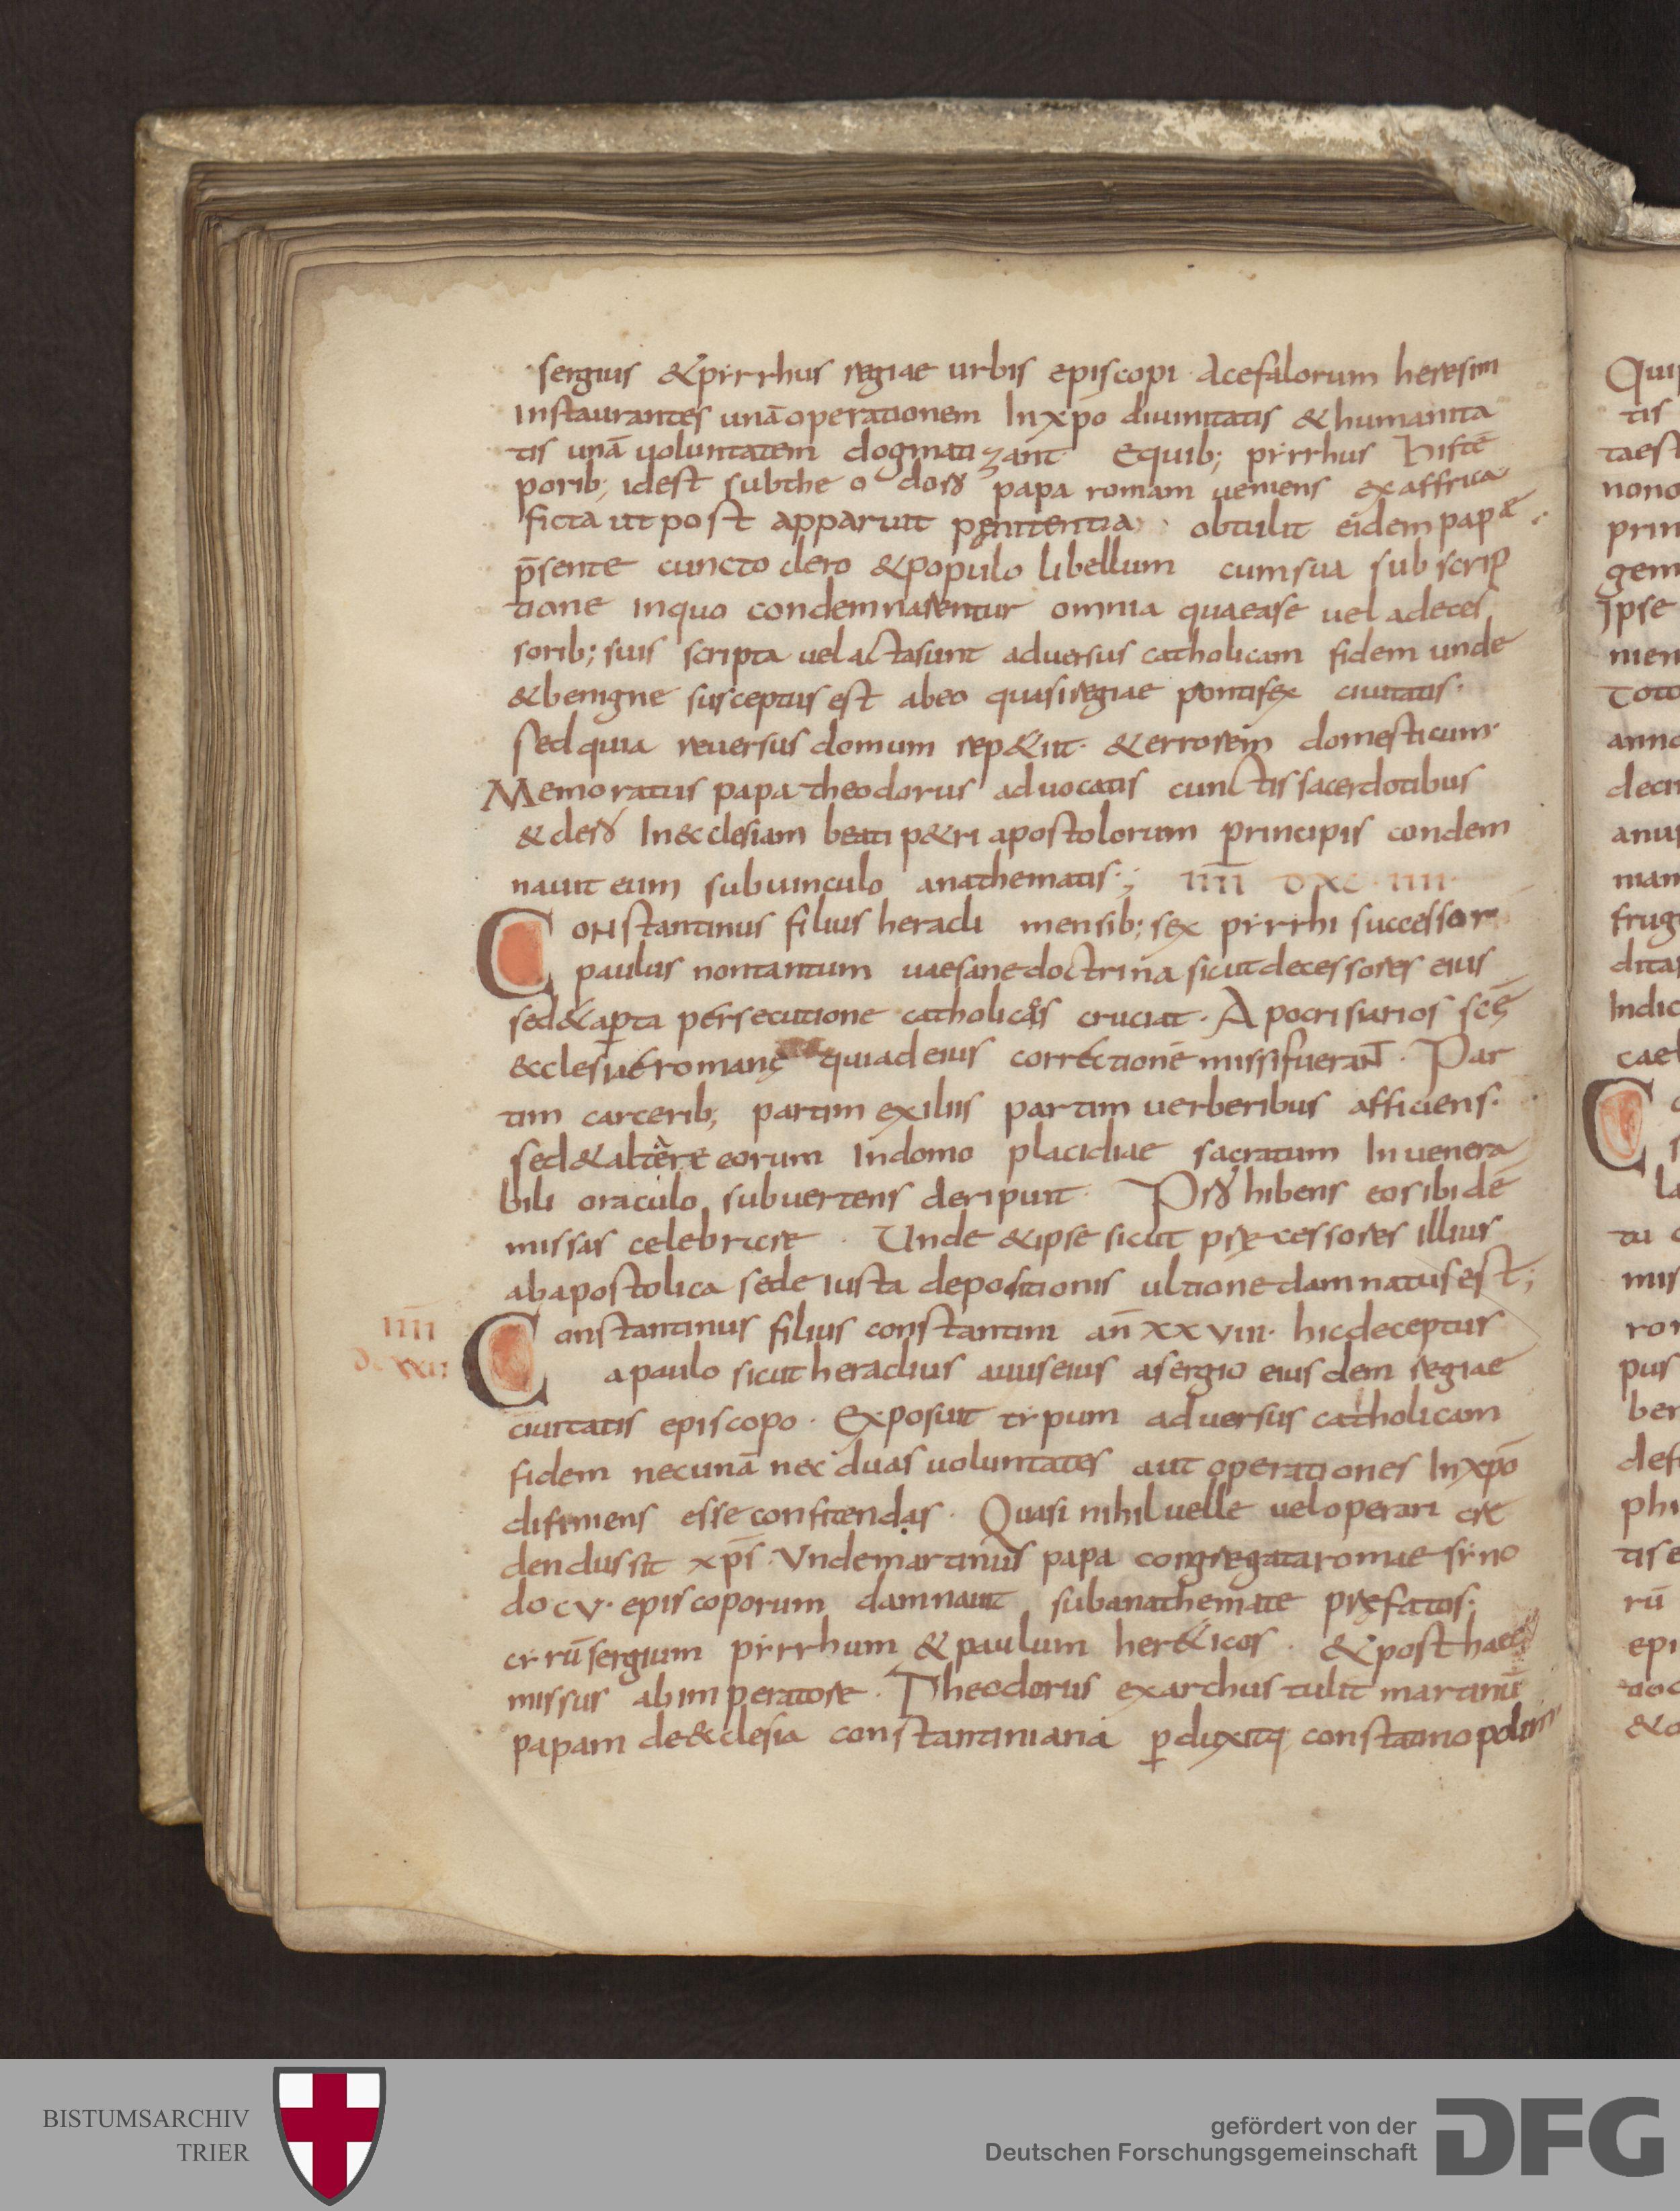 sergius & pirrhus regiae urbis episcopi Acefalorum heresim
Instaurantes unā operationem In xp̄o diuinitatis & humanita
tis unā uoluntatem dogmatizant Equib; pirrhus hisTē
porib; idest sub theodorO papa romam ueniens ex affrica
ficta ut post apparuit pęnitentia obtulit eidem papę
p̄sente cuncto clero & populo libellum cum sua subscrip
tione inquo condemnarentur omnia quae ase uel adeces
sorib; suis scripta uel acta sunt aduersus catholicam fidem unde
& benigne susceptus est abeo quasi regiae pontifex ciuitatis·
sed quia reuersus domum rep&iit· & errorem domesticum·
Memoratus papa theodorus aduocatis cunctis sacerdotibus
& clerO In&clesiam beati p&ri apostolorum principis condem
nauit eum sub uinculo anathematis·; IIII DXCIIII
CoNstantinus filius heracli mensib; sex pirrhi successor
paulus non tantum uaesane doctrina sicut decessores eius
sed & aperta persecutione catholicos cruciat· Apocrisiarios scē
&clesiae romanę quia ad eius correctionē missi fueraNT· Par
tim carcerib; partim exiliis partim uerberibus afficiens·
sed & altare eorum Indomo placidiae sacratum In uenera
bili oraculo subuertens deripuit· ProhIbens eos ibidē
missas celebrare · Unde & ipse sicut pręcessores illius
ab apostolica sede iusta depositionis ultione damnatus est;
IIII
DCXXII
Constantinus filius constantini an̄ xxviii· hic deceptus
a paulo sicut heraclius auus eius a sergio eiusdem regiae
ciuitatis episcopo· Exposuit tipum aduersus catholicam
fidem nec unā nec duas uoluntates aut operationes In xp̄o
difiniens esse confitendas · Quasi nihil uelle uel operari cre
dendus sit xp̄s · Vnde martinus papa congregata romae sino
do cv· episcoporum damnauit sub anathemate pręfatos·
cirū sergium pirrhum & paulum her&icos · & post haec
missus ab imperatore · Theodorus exarchus tulit martinū
papam de &clesia constantiniana perduxitq; constatinopolim
BISTUMSARCHIV
TRIER
gefördert von der
Deutschen Forschungsgemeinschaft
DFG